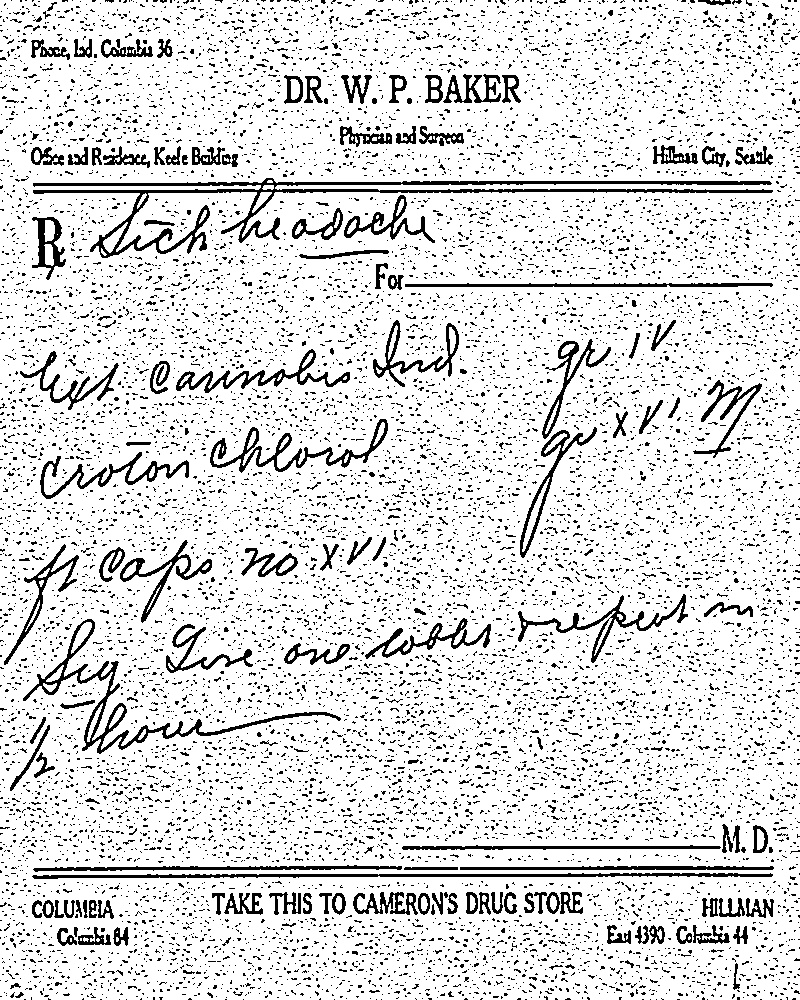 Phone, Ind. Columbia 36
DR. W. P. BAKER
Physician and Surgeon
Office and Residence, Keefe Building Hillman City, Seattle
℞ Sick headache
For
Ext. Cannabis Ind. gr IV
Croton Chloral gr XVI M
ft Caps no. XVI
Sig Give one & repeat in
1/2 hour
M. D.
COLUMBIA TAKE THIS TO CAMERON'S DRUG STORE HILLMAN
Columbia 84 East 4390 - Columbia 44